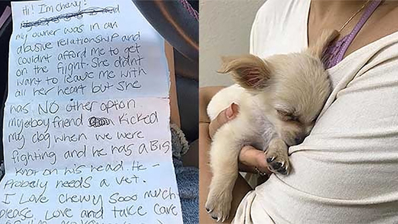 Hi! I'm chewy!
my owner was in an
abusive relationship and
couldnt afford me to get
on the flight. She didnt
want to leave me with
all her heart but she
has NO other option
my ex boyfriend kicked
my dog when we were
fighting and he has a Big
knot on his head. He
Probely needs a vet.
I Love chewy sooo much
please love and take care